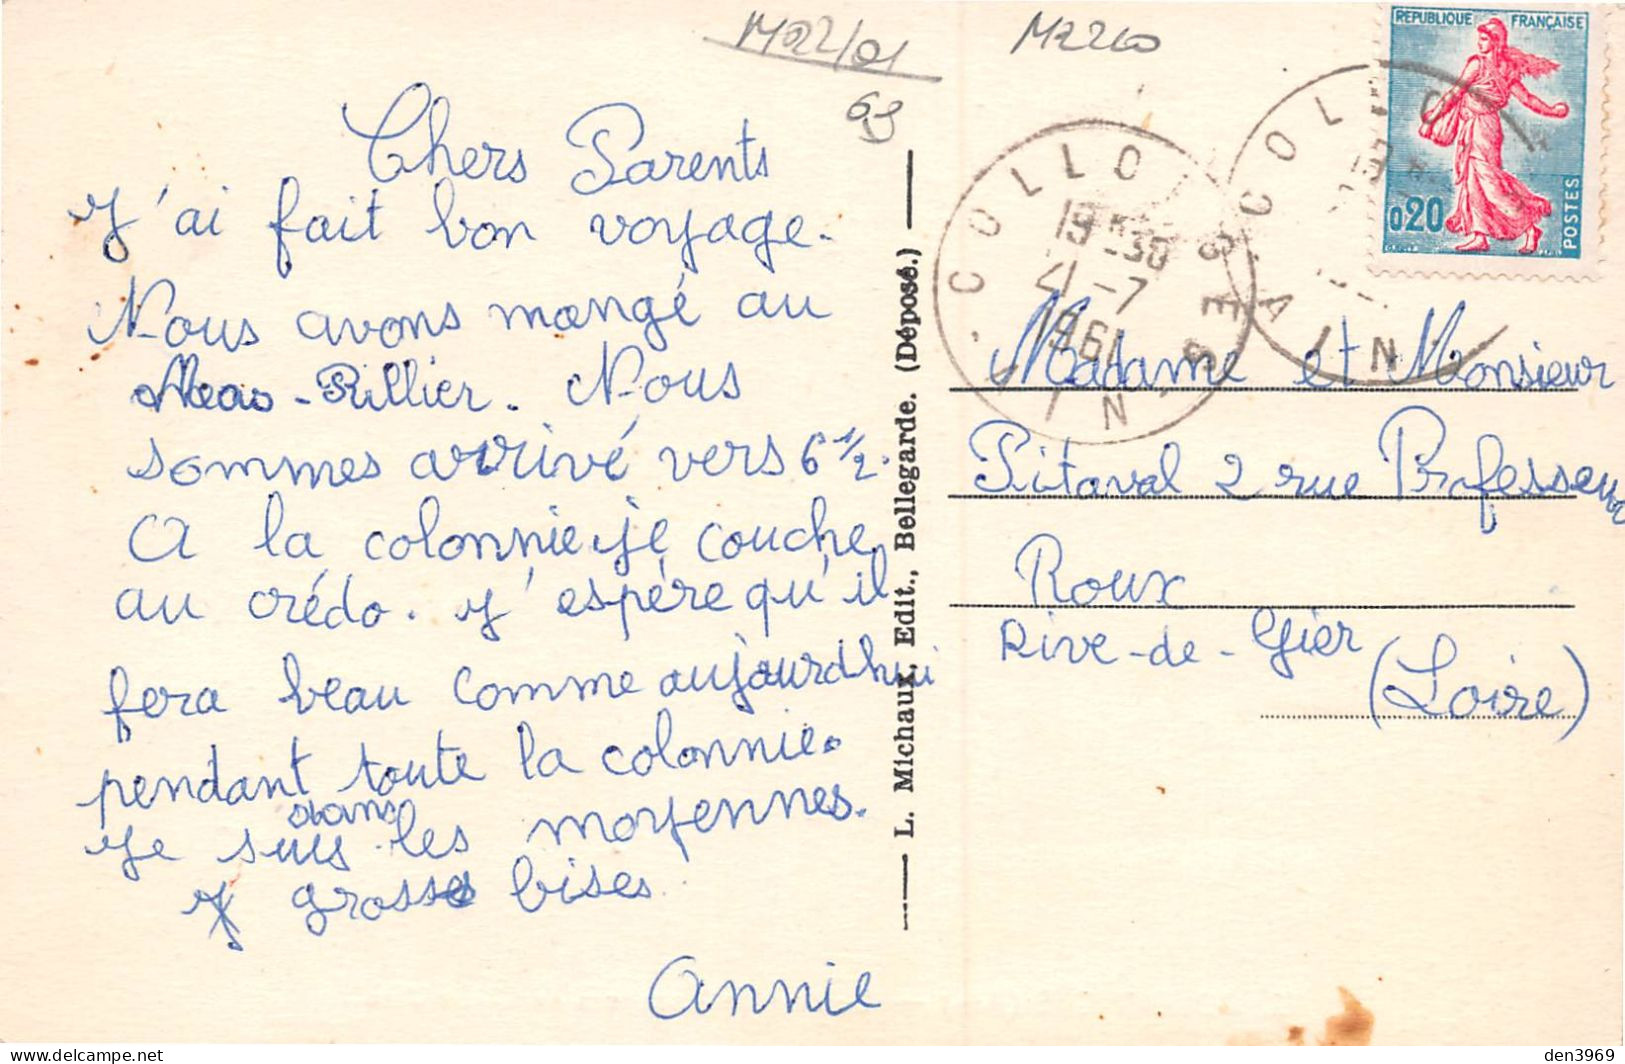 M22/01
69
M2260
Chers Parents
J'ai fait bon voyage.
Nous avons mangé au
Mas-Rillier. Nous
sommes arrivé vers 6 1/2.
A la colonnie je couche
au crédo. J'espére qu'il
fera beau comme aujourdhui
pendant toute la colonnie.
dans
Je suis les moyennes.
grosses bises.
Annie
L. Michaux, Edit., Bellegarde. (Déposé.)
COLLONGES
AIN
19 H 30
21 - 7
1961
COLLO
AIN
REPUBLIQUE FRANÇAISE
0,20
POSTES
Madame et Monsieur
Pitaval 2 rue Professeur
Roux
Rive-de-Gier
(Loire)
den3969